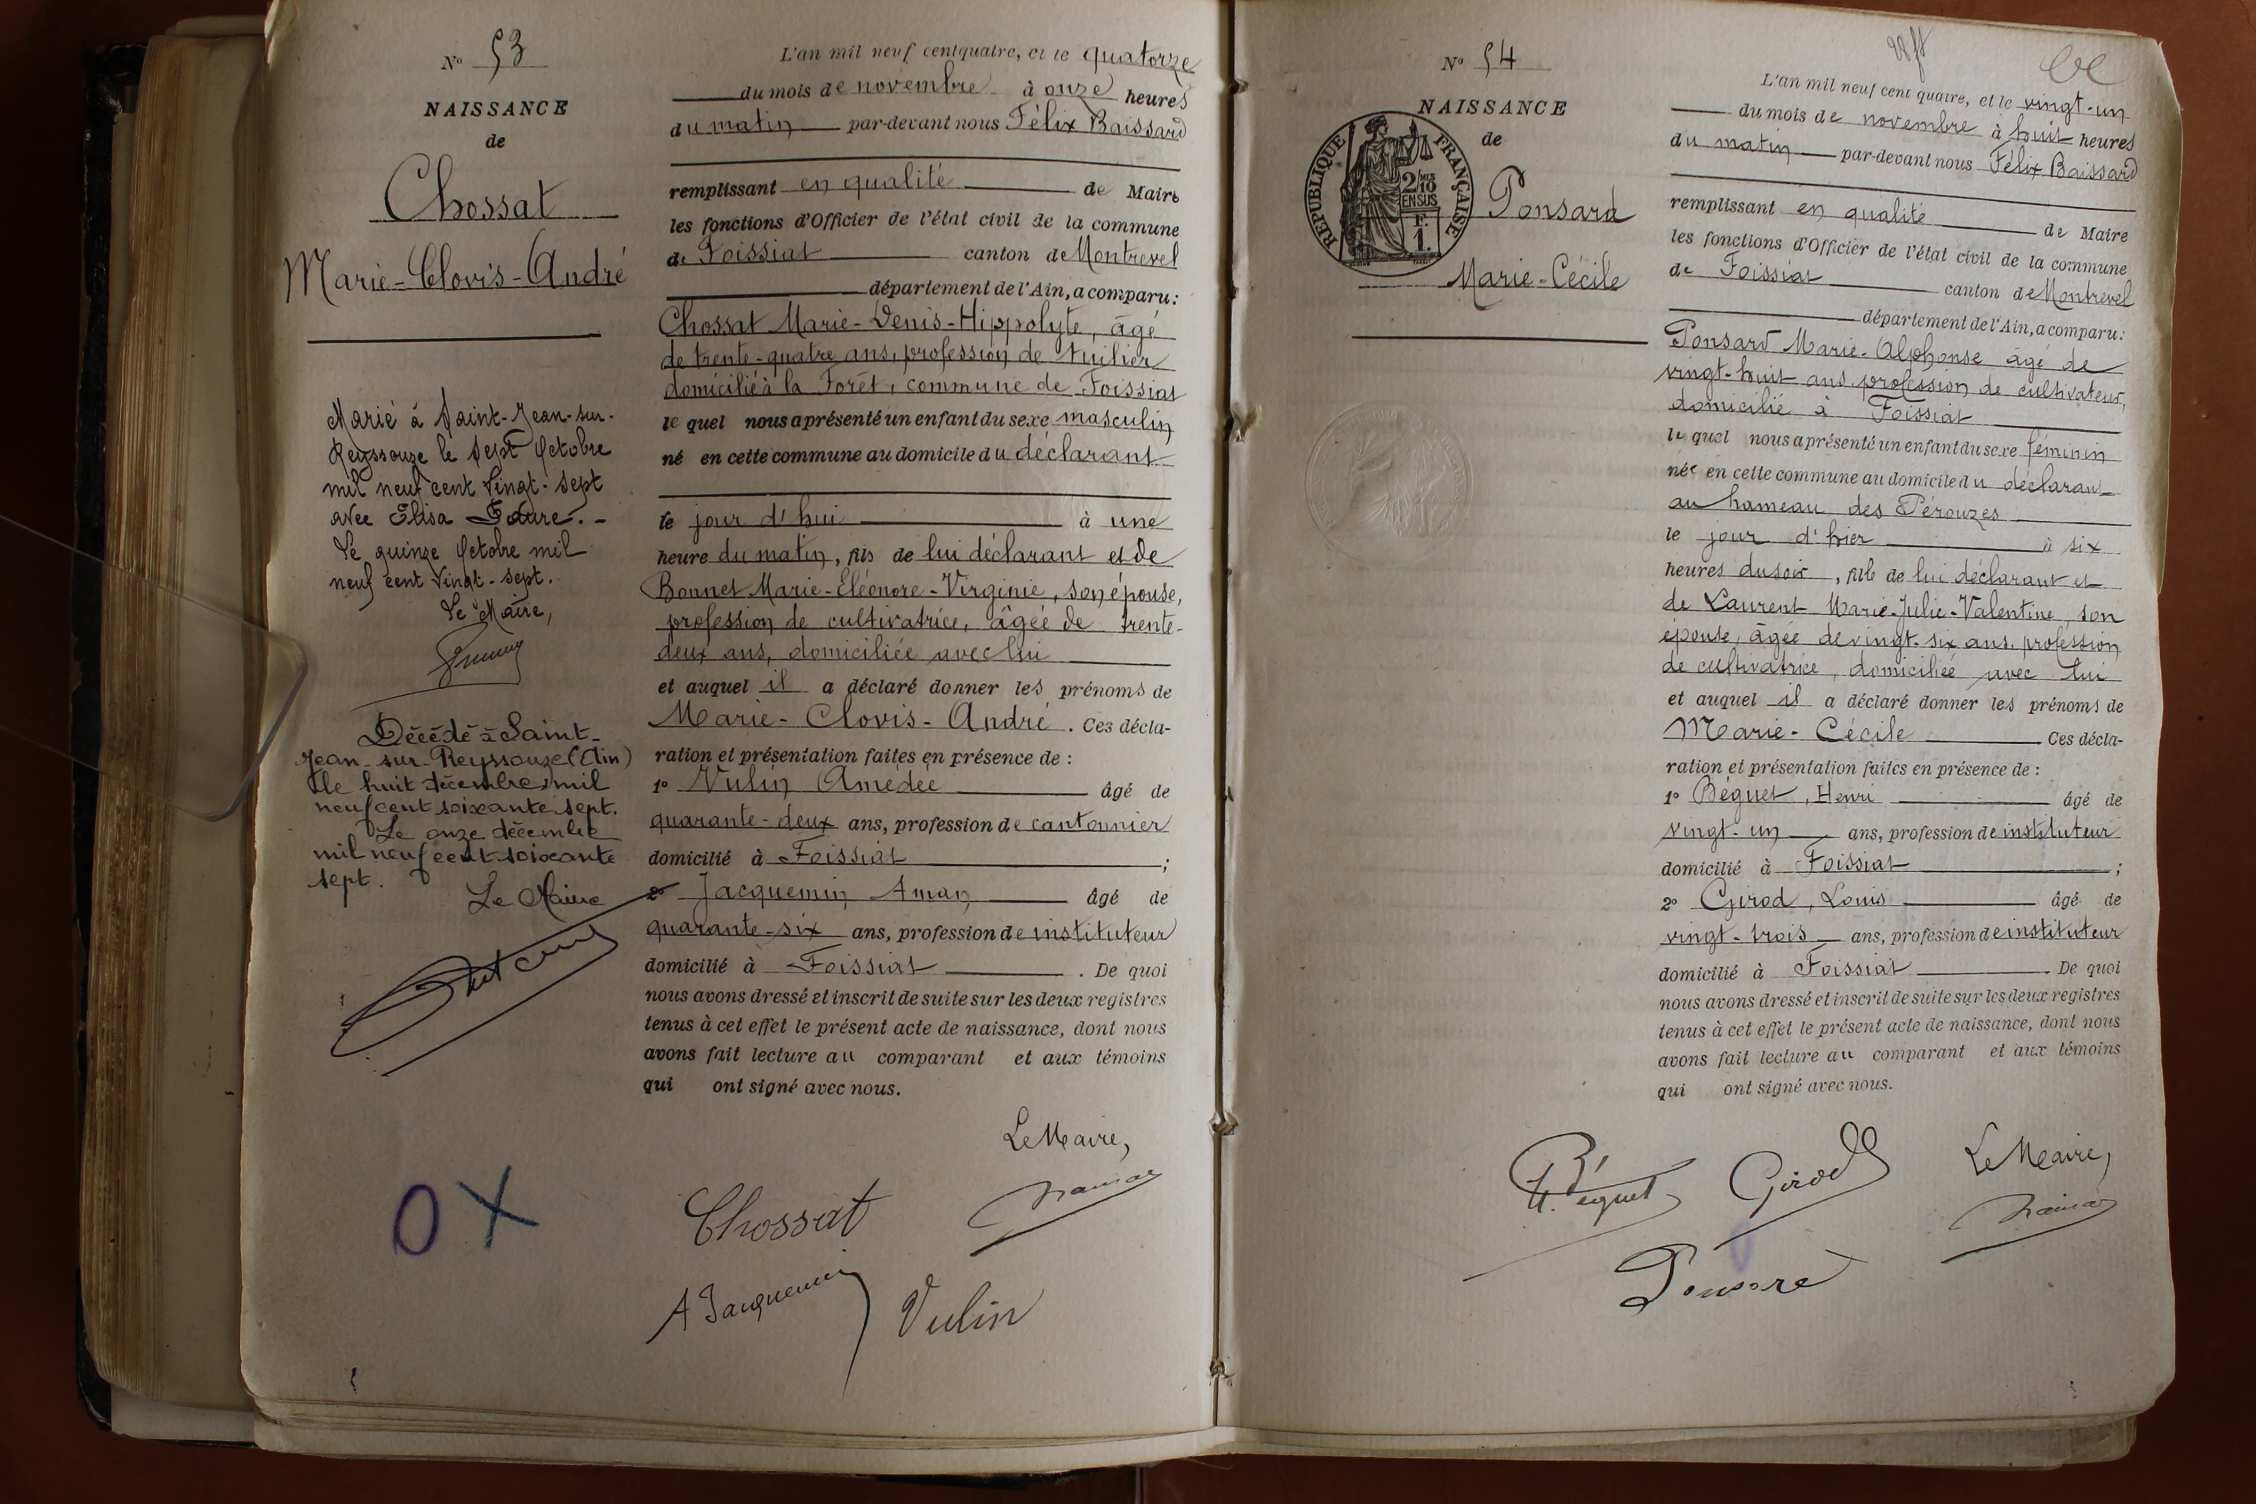 N° 53
NAISSANCE
de
Chossat
Marie-Clovis-André
Marié à Saint-Jean-sur-
Reyssouze le sept Octobre
mil neuf cent Vingt-sept
avec Elisa
Le quinze Octobre mil
neuf cent Vingt-sept.
Le Maire,
Décédé à Saint-
Jean-sur-Reyssouze (Ain)
le huit décembre mil
neuf cent soixante sept.
Le onze décembre
mil neuf cent soixante
sept.
Le Maire
O X
L'an mil neuf cent quatre, et le quatorze
du mois de novembre à onze heures
du matin par-devant nous Félix Baissard
remplissant en qualité de Maire
les fonctions d'Officier de l'état civil de la commune
de Foissiat canton de Montrevel
département de l'Ain, a comparu:
Chossat Marie-Denis-Hippolyte, âgé
de trente-quatre ans, profession de tuilier
domicilié à la Forêt, commune de Foissiat
le quel nous a présenté un enfant du sexe masculin
né en cette commune au domicile du déclarant
le jour d'hui à une
heure du matin, fils de lui déclarant et de
Bonnet Marie-Eléonore-Virginie, son épouse,
profession de cultivatrice, âgée de trente-
deux ans, domiciliée avec lui
et auquel il a déclaré donner les prénoms de
Marie-Clovis-André. Ces décla-
ration et présentation faites en présence de :
1° Vulin Amédée âgé de
quarante-deux ans, profession de cantonnier
domicilié à Foissiat ;
2° Jacquemin Aman âgé de
quarante-six ans, profession de instituteur
domicilié à Foissiat . De quoi
nous avons dressé et inscrit de suite sur les deux registres
tenus à cet effet le présent acte de naissance, dont nous
avons fait lecture au comparant et aux témoins
qui ont signé avec nous.
Le Maire,
Chossat
A Jacquemin
Vulin
N° 54
NAISSANCE
de
RÉPUBLIQUE FRANÇAISE
2/10
EN SUS
F.
1.
Ponsard
Marie-Cécile
L'an mil neuf cent quatre, et le vingt-un
du mois de novembre à huit heures
du matin par-devant nous Félix Baissard
remplissant en qualité de Maire
les fonctions d'Officier de l'état civil de la commune
de Foissiat canton de Montrevel
département de l'Ain, a comparu:
Ponsard Marie-Alphonse âgé de
vingt-huit ans profession de cultivateur,
domicilié à Foissiat
le quel nous a présenté un enfant du sexe féminin
née en cette commune au domicile du déclarant
au hameau des Pérouzes
le jour d'hier à six
heures du soir, fille de lui déclarant et
de Laurent Marie-Julie-Valentine, son
épouse, âgée de vingt-six ans, profession
de cultivatrice, domiciliée avec lui
et auquel il a déclaré donner les prénoms de
Marie-Cécile Ces décla-
ration et présentation faites en présence de :
1° Béguet, Henri âgé de
vingt-un ans, profession de instituteur
domicilié à Foissiat ;
2° Girod, Louis âgé de
vingt-trois ans, profession de instituteur
domicilié à Foissiat . De quoi
nous avons dressé et inscrit de suite sur les deux registres
tenus à cet effet le présent acte de naissance, dont nous
avons fait lecture au comparant et aux témoins
qui ont signé avec nous.
H. Béguet
Girod
Le Maire,
Ponsard